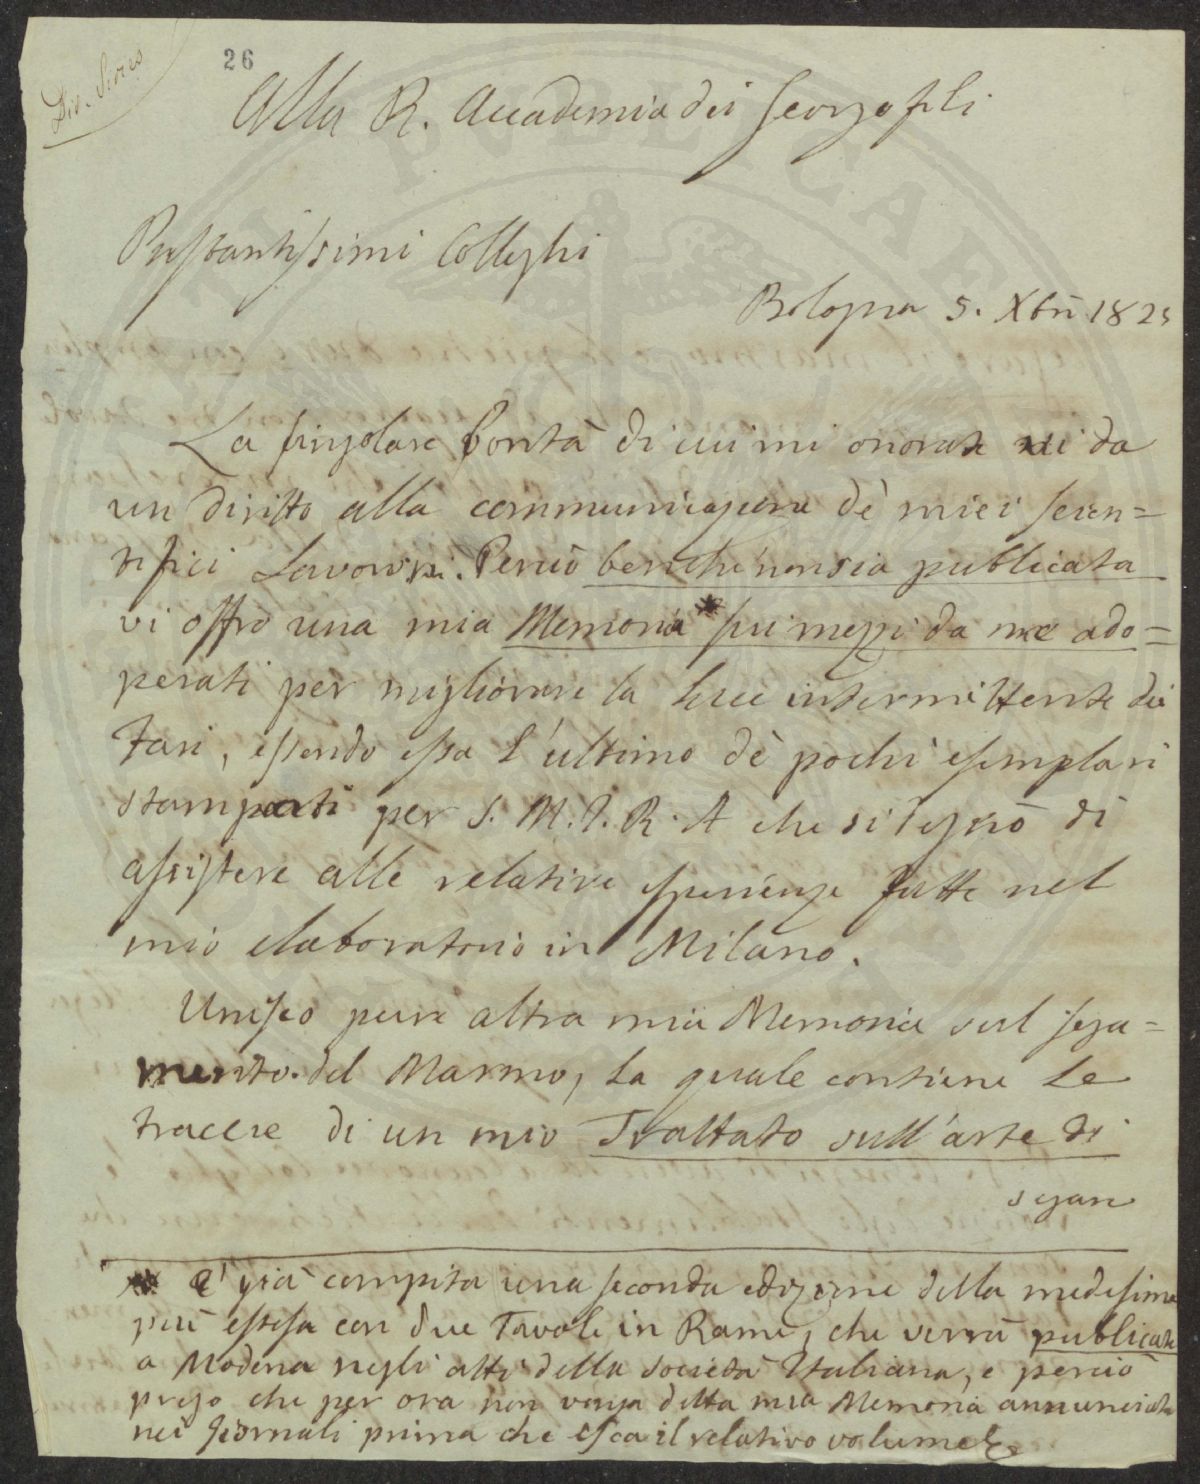 26
Div. Sivies
Alla R. Accademia dei Georgofili
Prestantissimi Colleghi
Bologna 5. Xbre 1825
La singolare bontà di cui mi onorate mi da
un diritto alla communicazione de' miei scien=
tifici Lavori. Perciò benchè non sia publicata
vi offro una mia Memoria * sui mezzi da me ado=
perati per migliorare la luce intermittente dei
Fari, essendo essa l'ultimo de' pochi esemplari
stampati per S. M. I. R. A che si degnò di
assistere alle relative sperienze fatte nel
mio elaboratorio in Milano.
Unisco pure altra mia Memoria sul sega=
mento del Marmo, la quale contiene le
traccie di un mio Trattato sull'arte di
segare
* È già compita una seconda edizione della medesima
più estesa con due Tavole in Rame, che verrà publicata
a Modena negli atti della Società Italiana, e perciò
prego che per ora non venga detta mia Memoria annunciata
nei Giornali prima che esca il relativo volume